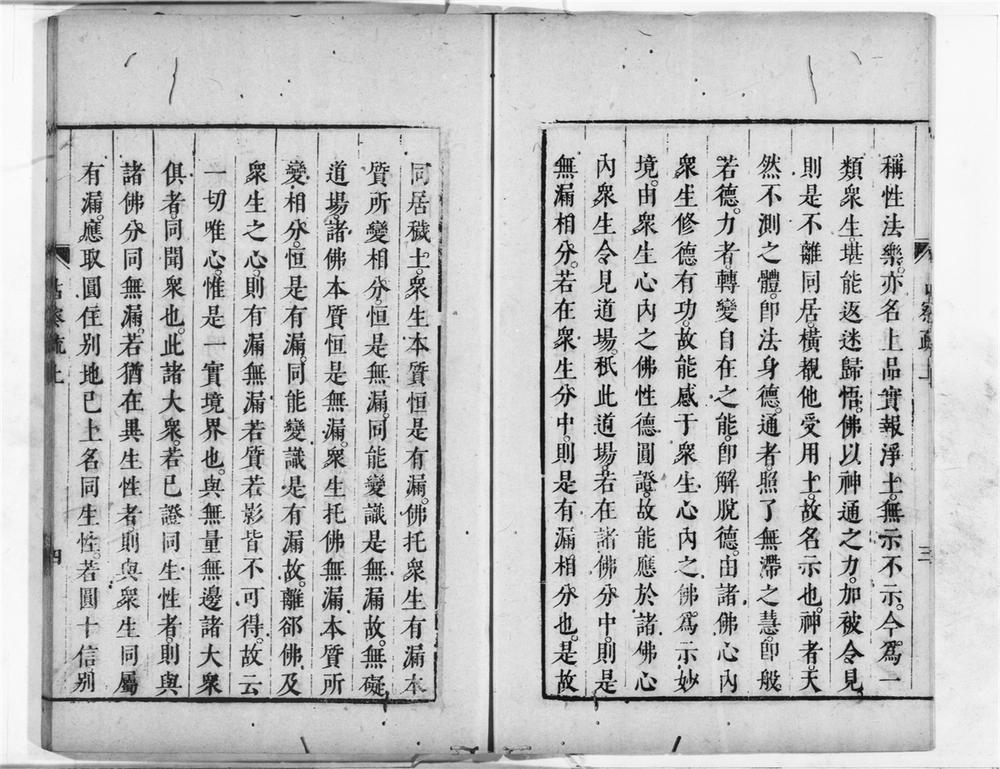 稱性法樂亦名上品實報淨土無示不示今爲一
類衆生堪能返迷歸悟佛以神通之力加被令見
則是不離同居橫覩他受用土故名示也神者天
然不測之體卽法身德通者照了無滯之慧卽般
若德力者轉變自在之能卽解脫德由諸佛心內
衆生修德有功故能感于衆生心內之佛爲示妙
境由衆生心內之佛性德圓證故能應於諸佛心
內衆生令見道場秪此道場若在諸佛分中則是
無漏相分若在衆生分中則是有漏相分也是故
占察疏上
三
同居穢土衆生本質恒是有漏佛托衆生有漏本
質所變相分恒是無漏同能變識是無漏故無礙
道場諸佛本質恒是無漏衆生托佛無漏本質所
變相分恒是有漏同能變識是有漏故離卻佛及
衆生之心則有漏無漏若質若影皆不可得故云
一切唯心惟是一實境界也與無量無邊諸大衆
俱者同聞衆也此諸大衆若已證同生性者則與
諸佛分同無漏若猶在異生性者則與衆生同屬
有漏應取圓住別地已上名同生性若圓十信別
占察疏上
四